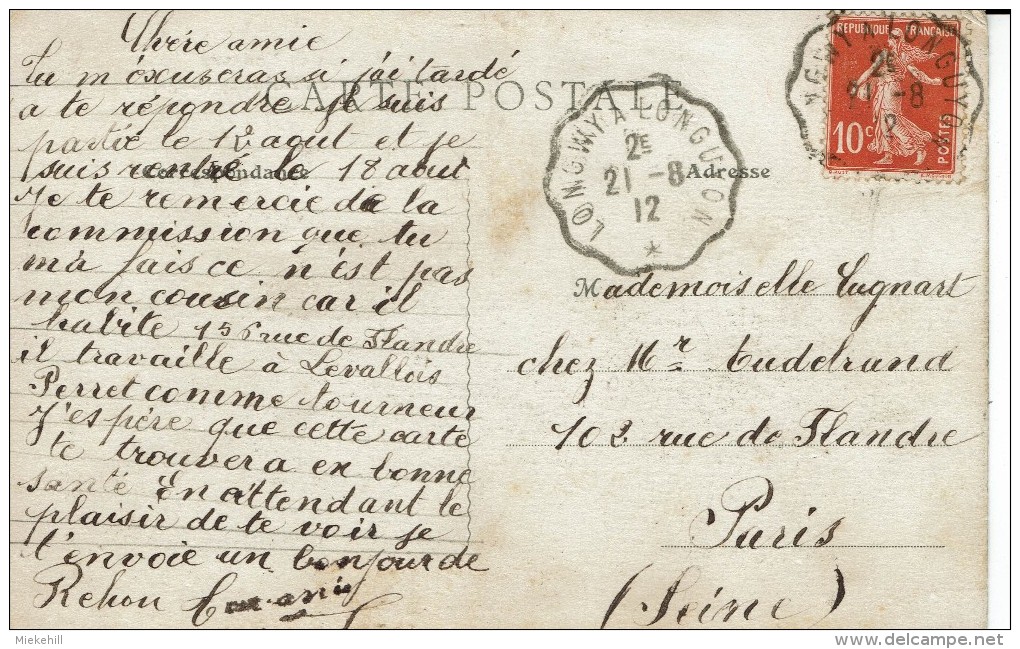 Chère amie
Tu m'éxuseras si j'ai tardé
a te répondre je suis
partie le 12 agut et je
suis rentré le 18 aout
Je te remercie de la
commission que tu
m'a fais ce n'est pas
mon cousin car il
habite 156 rue de Flandre
il travaille à Levallois
Perret comme tourneur
J'espère que cette carte
te trouvera en bonne
santé En attendant le
plaisir de te voir je
t'envoie un bonjour de
Rehon
CARTE POSTALE
Correspondance
Adresse
LONGWY A LONGUYON
2E
21 -8
12
REPUBLIQUE FRANÇAISE
10c
POSTES
LONGWY A LONGUYON
2E
21 -8
12
Mademoiselle Cugnart
chez Mr Tudelrund
102 rue de Flandre
Paris
(Seine)
Miekehill
delcampe.net